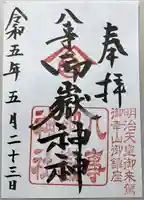 奉拝
明治天皇御来駕
御幸山御鎮座
八事
御嶽神
令和五年 五月二十三日